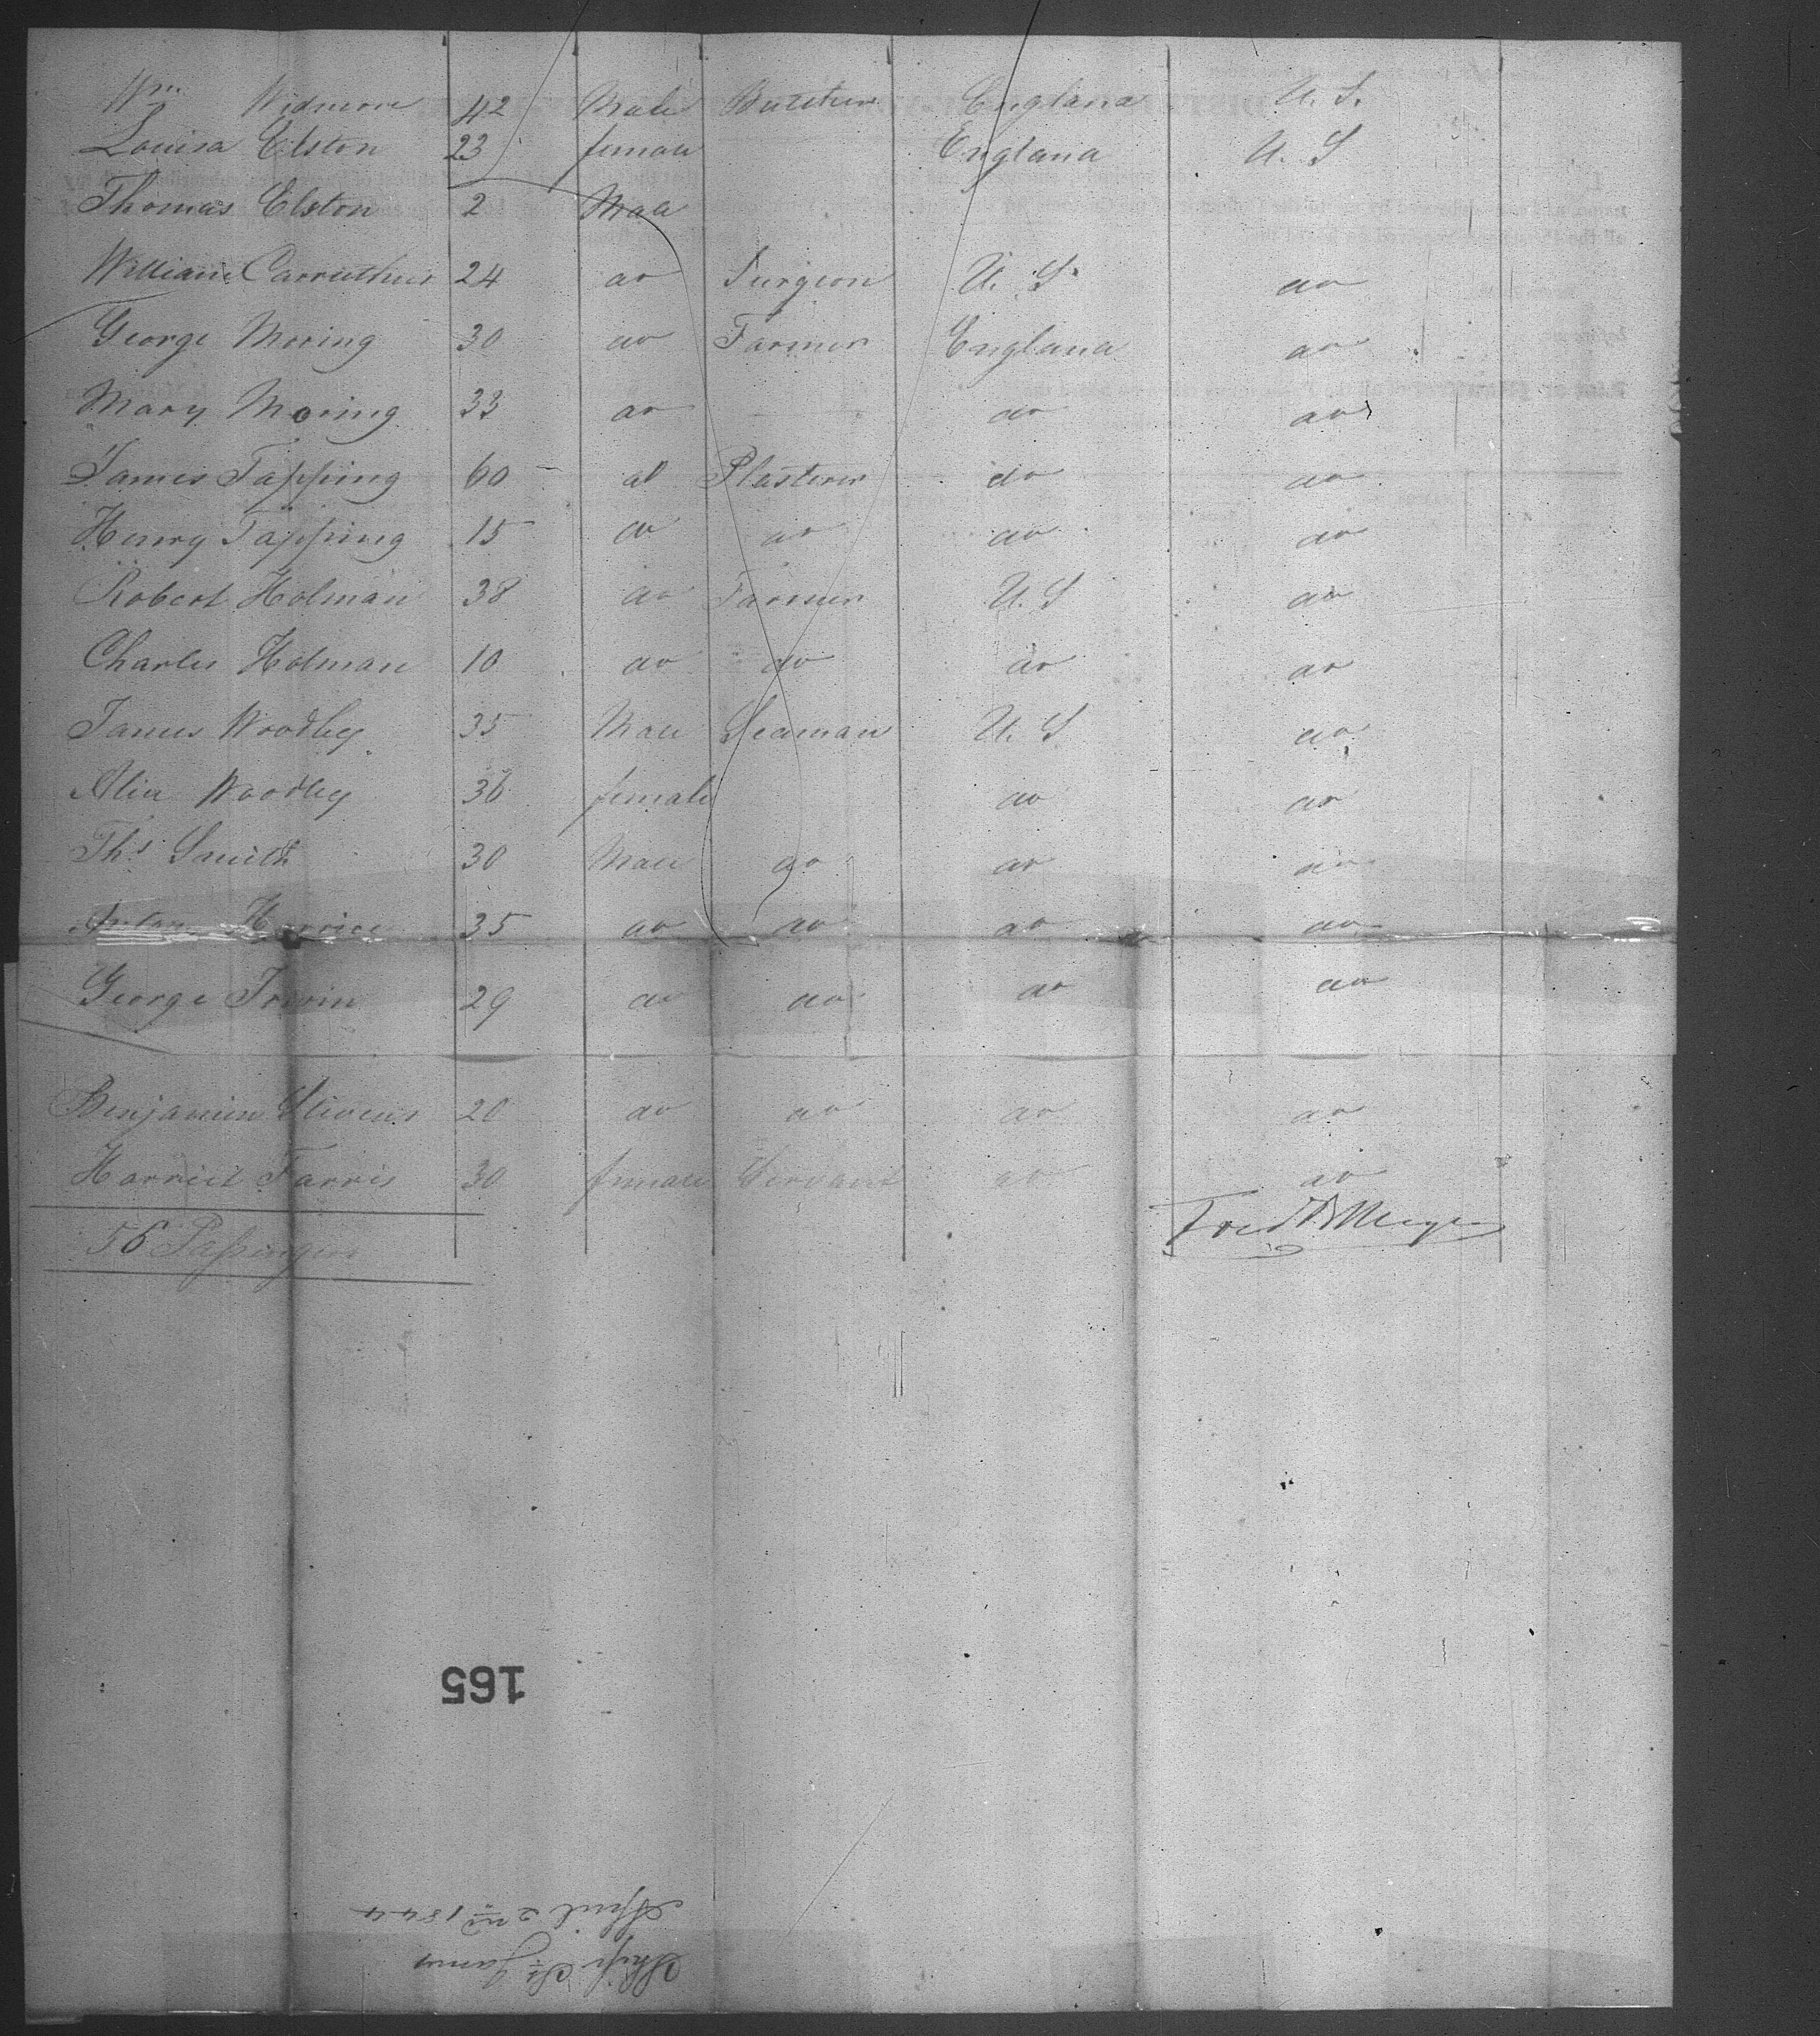 Wm Widmore 42 Male Butcher England U. S.
Louisa Elston 23 female England U. S
Thomas Elston 2 Male
William Carruthers 24 do Surgeon U. S do
George Moring 30 do Farmer England do
Mary Moring 33 do do do
James Tapping 60 do Plasterer do do
Henry Tapping 15 do do do do
Robert Holman 38 do Farmer U. S do
Charles Holman 10 do do do do
James Woodley 35 Male Seaman U. S do
Woodley 36 female do do
Ths Smith 30 Male do do do
35 do do do do
George Irwin 29 do do do do
Benjamin Stivens 20 do do do do
Harriet Farris 30 female Servant do do
56 Passengers
Fred
165
Ship St James
April 2nd 1844